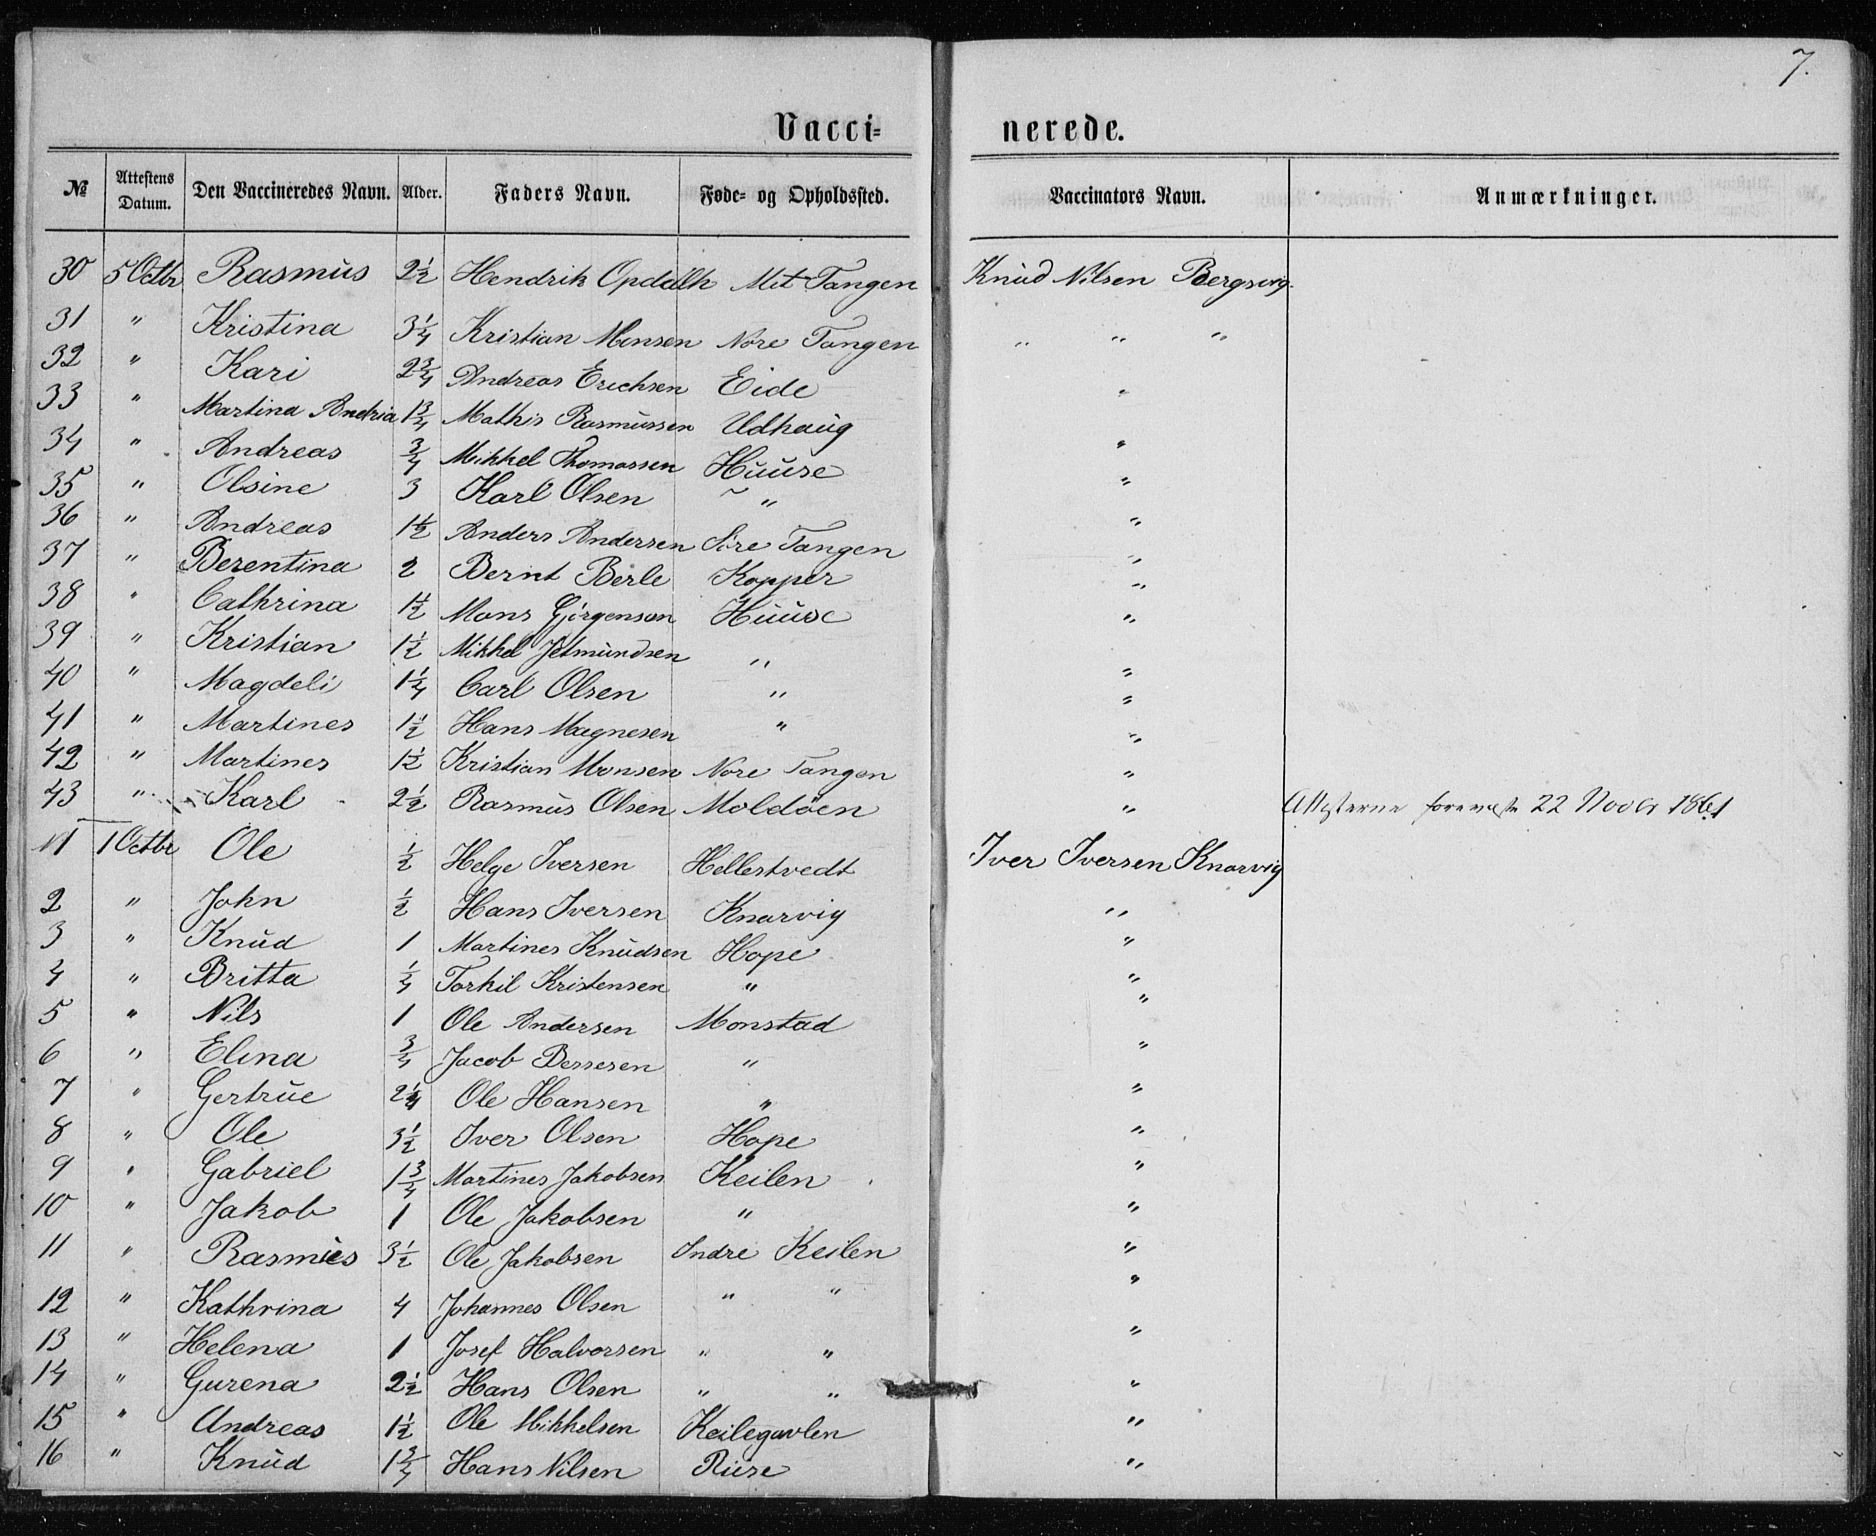 7.
Vaccinerede.
№ Attestens Datum. Den Vaccineredes Navn. Alder. Faders Navn. Føde- og Opholdssted. Vaccinators Navn. Anmærkninger.
30 5 Octbr Rasmus 2½ Hendrik Opdalh Mit Tangen Knud Nilsen Bergsvig.
31 " Kristina 3¼ Kristian Monsen Nore Tangen " " "
32 " Kari 2¾ Andreas Erichsen Eide "
33 " Martina Andria 1¾ Mathis Rasmussen Udhaug
34 " Andreas ¾ Mikkel Thomassen Huuse "
35 " Olsine 3 Karl Olsen " "
36 " Andreas 1½ Anders Andersen Søre Tangen "
37 " Berentina 2 Bernt Berle Kopper "
38 " Cathrina 1½ Mons Gjørgenson Huuse "
39 " Kristian 1½ Mikkel Jetmundsen " "
40 " Magdeli 1¼ Carl Olsen " "
41 " Martines 1½ Hans Magnesen " "
42 " Martines 1½ Kristian Monsen Nore Tangen "
43 " Karl 2½ Rasmus Olsen Moldöen " Attesterne foreviste 22 Novbr 1861
1 1 Octbr Ole ½ Helge Iversen Hellestvedt Iver Iversen Knarvig
2 " John ½ Hans Iversen Knarvig "
3 " Knud 1 Martines Knudsen Hope "
4 " Britta ¼ Torkil Kristensen " "
5 " Nils 1 Ole Andersen Monstad "
6 " Elina ¾ Jacob Bessesen " "
7 " Gertrue 2¼ Ole Hansen " "
8 " Ole 3½ Iver Olsen Hope "
9 " Gabriel 1¾ Martines Jakobsen Keilen "
10 " Jakob 1 Ole Jakobsen " "
11 " Rasmus 3½ Ole Jakobsen Indre Keilen "
12 " Kathrina 4 Johannes Olsen " " "
13 " Helena 1 Josef Halvorsen " " "
14 " Gurena 2½ Hans Olsen " " "
15 " Andreas 1½ Ole Mikkelsen Keilegavlen "
16 " Knud 1¾ Hans Nilsen Riise "